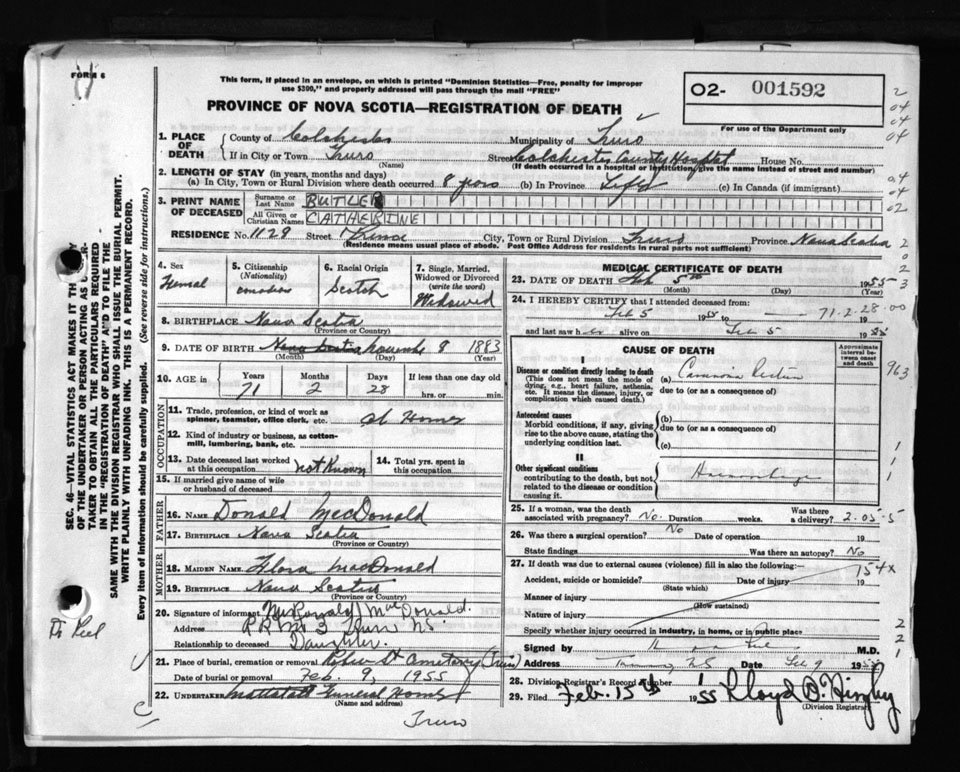 FORM 6
This form, if placed in an envelope, on which is printed "Dominion Statistics—Free, penalty for improper
use $300," and properly addressed will pass through the mail "FREE"
PROVINCE OF NOVA SCOTIA—REGISTRATION OF DEATH
O2- 001592
For use of the Department only
1. PLACE OF DEATH County of Colchester Municipality of Truro
If in City or Town Truro (Name) Street Colchester County Hospital House No.
(If death occurred in a hospital or institution, give the name instead of street and number)
2. LENGTH OF STAY (in years, months and days)
(a) In City, Town or Rural Division where death occurred 8 years (b) In Province Life (c) In Canada (if immigrant)
3. PRINT NAME OF DECEASED Surname or Last Name BUTLER
All Given or Christian Names CATHERINE
RESIDENCE No. 1129 Street City, Town or Rural Division Truro Province Nova Scotia
(Residence means usual place of abode. Post Office Address for rural parts not sufficient)
4. Sex Femal
5. Citizenship (Nationality)
6. Racial Origin Scotch
7. Single, Married, Widowed or Divorced (write the word) Widowed
8. BIRTHPLACE Nova Scotia
(Province or Country)
9. DATE OF BIRTH Nova Scotia November 8 1883
(Month) (Day) (Year)
10. AGE in Years Months Days If less than one day old
71 2 28 hrs. or min.
OCCUPATION
11. Trade, profession, or kind of work as spinner, teamster, office clerk, etc. At Home
12. Kind of industry or business, as cotton-mill, lumbering, bank, etc.
13. Date deceased last worked at this occupation not Known 14. Total yrs. spent in this occupation
15. If married give name of wife or husband of deceased
FATHER
16. NAME Donald MacDonald
17. BIRTHPLACE Nova Scotia
(Province or Country)
MOTHER
18. MAIDEN NAME Flora MacDonald
19. BIRTHPLACE Nova Scotia
(Province or Country)
20. Signature of informant Mrs Ronald MacDonald.
Address R R No 3 Truro N.S.
Relationship to deceased Daughter.
21. Place of burial, cremation or removal Cemetery (Truro)
Date of burial or removal Feb. 9, 1955
22. UNDERTAKER Mattatall Funeral Home
(Name and address)
Truro
MEDICAL CERTIFICATE OF DEATH
23. DATE OF DEATH Feb 5th 1955
(Month) (Day) (Year)
24. I HEREBY CERTIFY that I attended deceased from:
Feb 5 1955 to 71.2.28.00 19
and last saw her alive on Feb 5 1955
CAUSE OF DEATH
Approximate interval between onset and death
I
Disease or condition directly leading to death
(This does not mean the mode of dying, e.g., heart failure, asthenia, etc. It means the disease, injury, or complication which caused death.)
(a) Carcinoma Rectum 963
due to (or as a consequence of)
Antecedent causes
Morbid conditions, if any, giving rise to the above cause, stating the underlying condition last.
(b)
due to (or as a consequence of)
(c)
II
Other significant conditions
contributing to the death, but not related to the disease or condition causing it.
Haemorrhage
25. If a woman, was the death associated with pregnancy? No. Duration weeks. Was there a delivery? 2.05-5
26. Was there a surgical operation? No Date of operation 19
State findings Was there an autopsy? No
27. If death was due to external causes (violence) fill in also the following:— 154x
Accident, suicide or homicide? Date of injury 19
(State which)
Manner of injury
(How sustained)
Nature of injury
Specify whether injury occurred in industry, in home, or in public place
Signed by M.D.
Address NS Date Feb 9 1955
28. Division Registrar's Record Number
29. Filed Feb. 15th 1955 Lloyd
(Division Registrar)
SEC. 46—VITAL STATISTICS ACT MAKES IT TH
OF THE UNDERTAKER OR PERSON ACTING AS
TAKER TO OBTAIN ALL THE PARTICULARS REQUIRED
IN THE "REGISTRATION OF DEATH" AND TO FILE THE
SAME WITH THE DIVISION REGISTRAR WHO SHALL ISSUE THE BURIAL PERMIT.
WRITE PLAINLY WITH UNFADING INK. THIS IS A PERMANENT RECORD.
Every item of information should be carefully supplied. (See reverse side for instructions.)